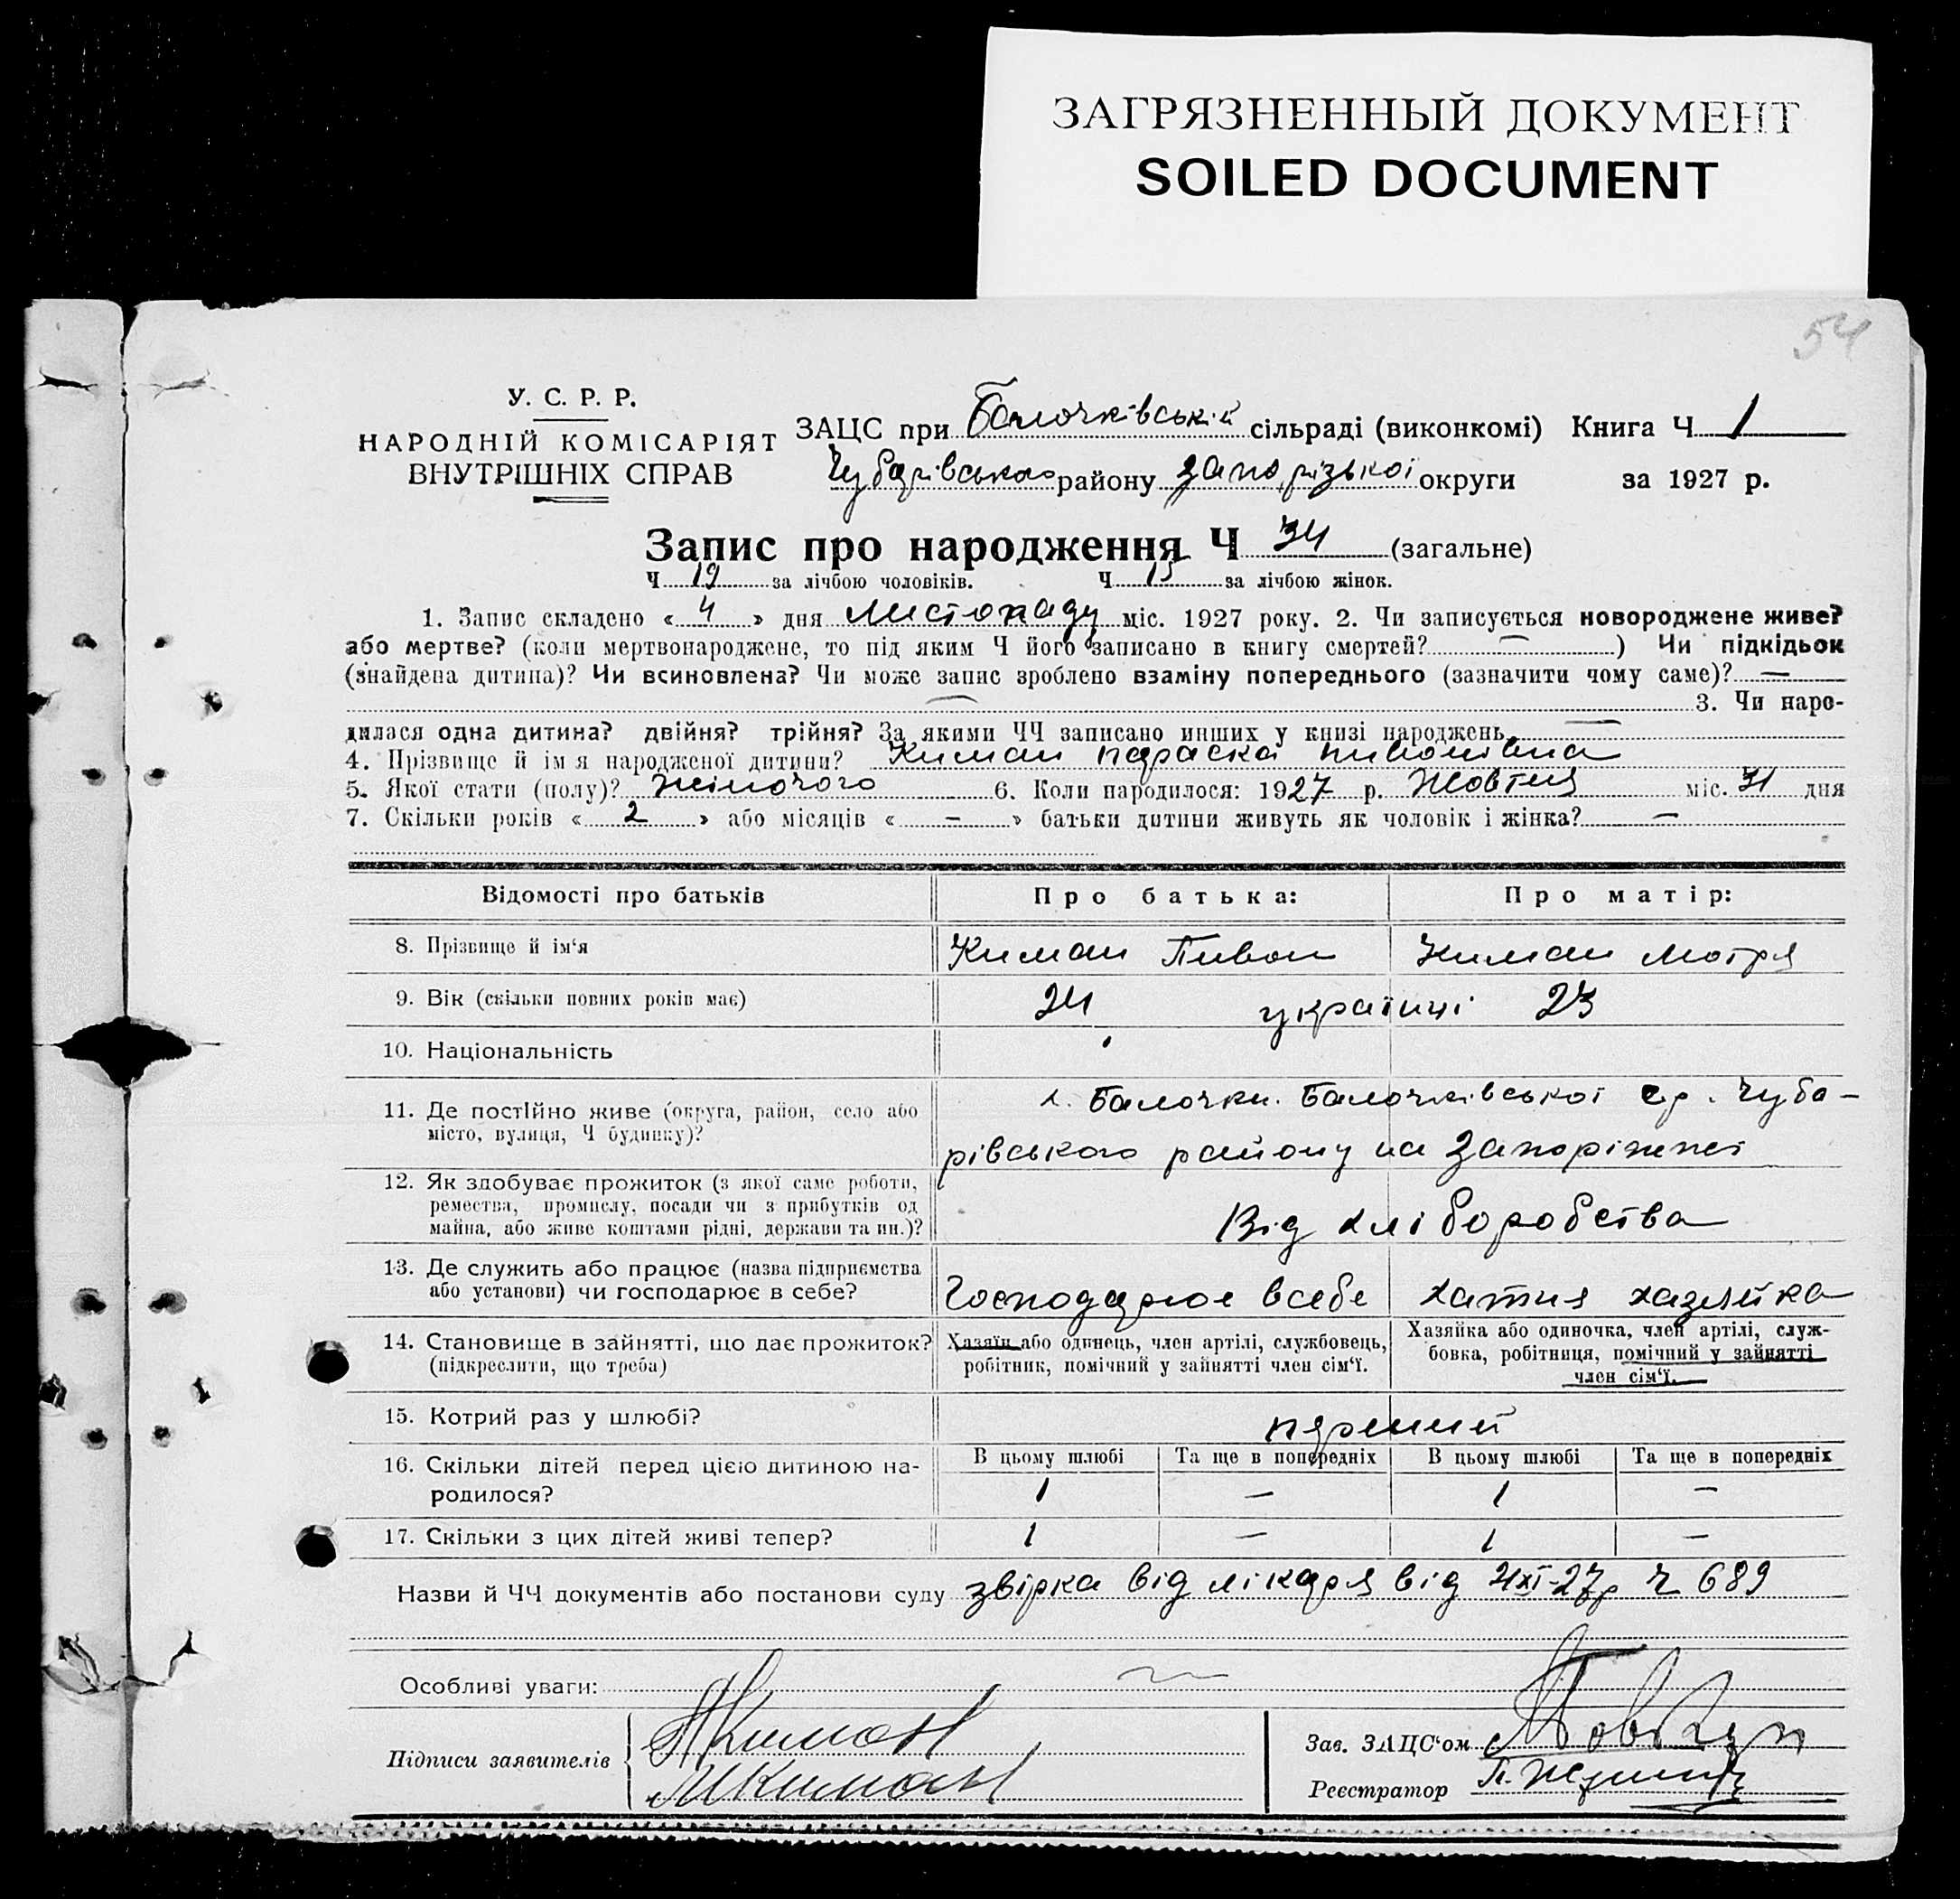 ЗАГРЯЗНЕННЫЙ ДОКУМЕНТ
SOILED DOCUMENT
54
У. С. Р. Р.
НАРОДНІЙ КОМІСАРІЯТ
ВНУТРІШНІХ СПРАВ
ЗАЦС при Балочківській сільраді (виконкомі) Книга Ч 1
Чубарівського району Запорізької округи за 1927 р.
Запис про народження Ч 34 (загальне)
Ч 19 за лічбою чоловіків. Ч 15 за лічбою жінок.
1. Запис складено « 4 » дня Листопаду міс. 1927 року. 2. Чи записується новороджене живе?
або мертве? (коли мертвонароджене, то під яким Ч його записано в книгу смертей? — ) Чи підкідьок
(знайдена дитина)? Чи всиновлена? Чи може запис зроблено взаміну попереднього (зазначити чому саме)? —
— 3. Чи наро-
дилася одна дитина? двійня? трійня? За якими ЧЧ записано инших у книзі народжень —
4. Прізвище й ім'я народженої дитини? Киман Параска Пивонівна
5. Якої статі (полу)? Жіночого 6. Коли народилося: 1927 р. Жовтня міс. 31 дня
7. Скільки років « 2 » або місяців « — » батьки дитини живуть як чоловік і жінка? —
Відомості про батьків Про батька: Про матір:
8. Прізвище й ім'я Киман Пивон Киман Мотря
9. Вік (скільки повних років має) 24 українці 23
10. Національність
11. Де постійно живе (округа, район, село або
місто, вулиця, Ч будинку)?
х. Балочки. Балочківської ср. Чуба-
рівського району на Запоріжжі
12. Як здобуває прожиток (з якої саме роботи,
ремества, промислу, посади чи з прибутків од
майна, або живе коштами рідні, держави та ин.)?
Від хліборобства
13. Де служить або працює (назва підприємства
або установи) чи господарює в себе?
Господарює в себе хатня хазяйка
14. Становище в зайнятті, що дає прожиток?
(підкреслити, що треба)
Хазяїн або одинець, член артілі, службовець,
робітник, помічний у зайнятті член сім'ї.
Хазяйка або одиночка, член артілі, служ-
бовка, робітниця, помічний у зайнятті
член сім'ї.
15. Котрий раз у шлюбі? перший
16. Скільки дітей перед цією дитиною на-
родилося?
В цьому шлюбі Та ще в попередніх В цьому шлюбі Та ще в попередніх
1 — 1 —
17. Скільки з цих дітей живі тепер? 1 — 1 —
Назви й ЧЧ документів або постанови суду звірка від лікаря від 4/XI-27р Ч 689
Особливі уваги:
Підписи заявителів
П Киман
М Киман
Зав. ЗАЦС'ом
Реєстратор